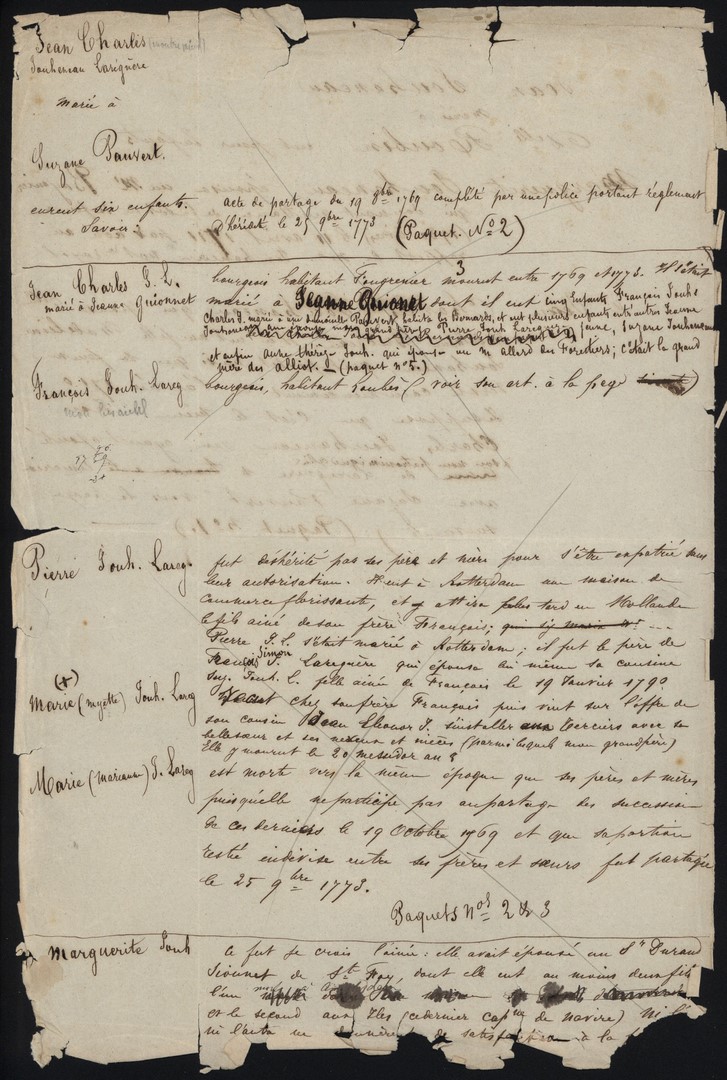 Jean Charles
Jouhaneau Laregnère
marié à
Suzane Pauvert.
eurent six enfants.
Savoir:
acte de partage du 19 8bre 1769 complété par une police portant règlement
d'hérédité le 25 9bre 1773 (Paquet. No 2)
Jean Charles J. L.
marié à Jeanne Guionnet
bourgeois habitant Fougrenier mourut entre 1769 et 1773. Il était
3
marié à Jeanne Guionet dont il eut cinq enfants François Jouh.
Charles J. marié à une demoiselle Pauvert, Bernards, et eut plusieurs enfants entr'autres Jeanne
Jouhaneau Pierre Jouh. Laregnère jeune, Suzane Jouhaneau
et enfin autre thérèse Jouh. qui épousa un M. allard des Forethiers; c'était la grand
mère des alliot. (paquet no 5.)
François Jouh. Lareg
bourgeois, habitant (voir son art. à la page)
Pierre Jouh. Lareg.
fut déshérité par ses père et mère pour s'être expatrié sans
leur autorisation. Il eut à Rotterdam une maison de
commerce florissante, et attira plus tard en Hollande
le fils ainé de son frère François;
Pierre J. L. s'était marié à Rotterdam; il fut le père de
François Simon J. Laregnère qui épousa lui même sa cousine
Suz. Jouh. L. fille ainée de François le 19 Janvier 1790.
(+)
Marie (myette) Jouh. Lareg
chez son frère François puis vint sur l'offre de
son cousin Jean Eleonor J. s'installer aux Terciers avec sa
belle sœur et ses neveux et nièces (parmi lesquels mon grand père)
Elle y mourut le 20 messidor an 8
Marie (Marianne) J. Lareg
est morte vers la même époque que ses pères et mères
puisqu'elle ne participe pas au partage des succession
de ces derniers le 19 Octobre 1769 et que sa portion
restée indivise entre ses frères et sœurs fut partagée
le 25 9bre 1773.
Paquets nos 2 & 3
Marguerite Jouh
Ce fut je crois l'ainée: elle avait épousé un Sr Durand
Sionnet de Ste Foy, dont elle eut au moins deux fils
l'un
et le second aux Iles (ce dernier capne de navire) Ni l'
ni l'autre ne donnèrent de satisfaction à la